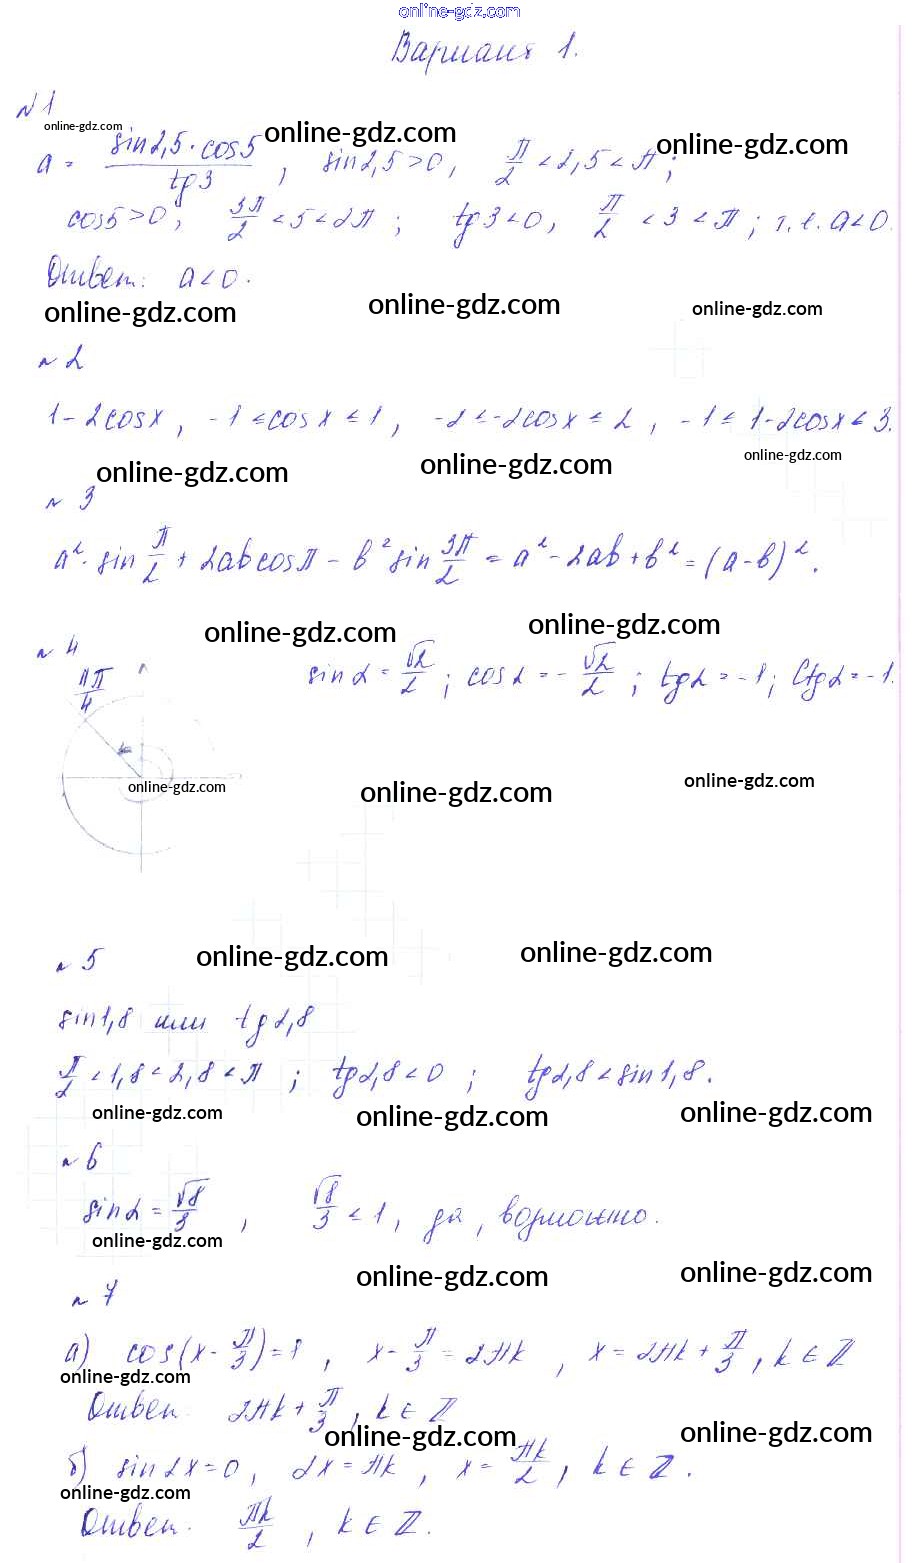 online-gdz.com
Вариант 1.
№1
online-gdz.com online-gdz.com online-gdz.com
a = sin2,5·cos5/tg3, sin2,5>0, π/2<2,5<π;
cos5>0, 3π/2<5<2π; tg3<0, π/2<3<π; т.е. a<0.
Ответ: a<0.
online-gdz.com online-gdz.com online-gdz.com
№2
1-2cosx, -1≤cosx≤1, -2≤-2cosx≤2, -1≤1-2cosx≤3.
online-gdz.com online-gdz.com online-gdz.com
№3
a²·sin π/2 + 2ab cosπ - b² sin 3π/2 = a²-2ab+b² = (a-b)².
online-gdz.com online-gdz.com
№4
11π/4 sinα=√2/2; cosα=-√2/2; tgα=-1; ctgα=-1.
online-gdz.com online-gdz.com online-gdz.com
online-gdz.com online-gdz.com
№5
sin1,8 или tg2,8
π/2<1,8<2,8<π; tg2,8<0; tg2,8<sin1,8.
online-gdz.com online-gdz.com online-gdz.com
№6
sinα=√8/3, √8/3<1, да, возможно.
online-gdz.com online-gdz.com online-gdz.com
№7
а) cos(x-π/3)=1, x-π/3=2πk, x=2πk+π/3, k∈Z
online-gdz.com
Ответ: 2πk+π/3, k∈Z
online-gdz.com online-gdz.com
б) sin2x=0, 2x=πk, x=πk/2, k∈Z.
online-gdz.com
Ответ: πk/2, k∈Z.